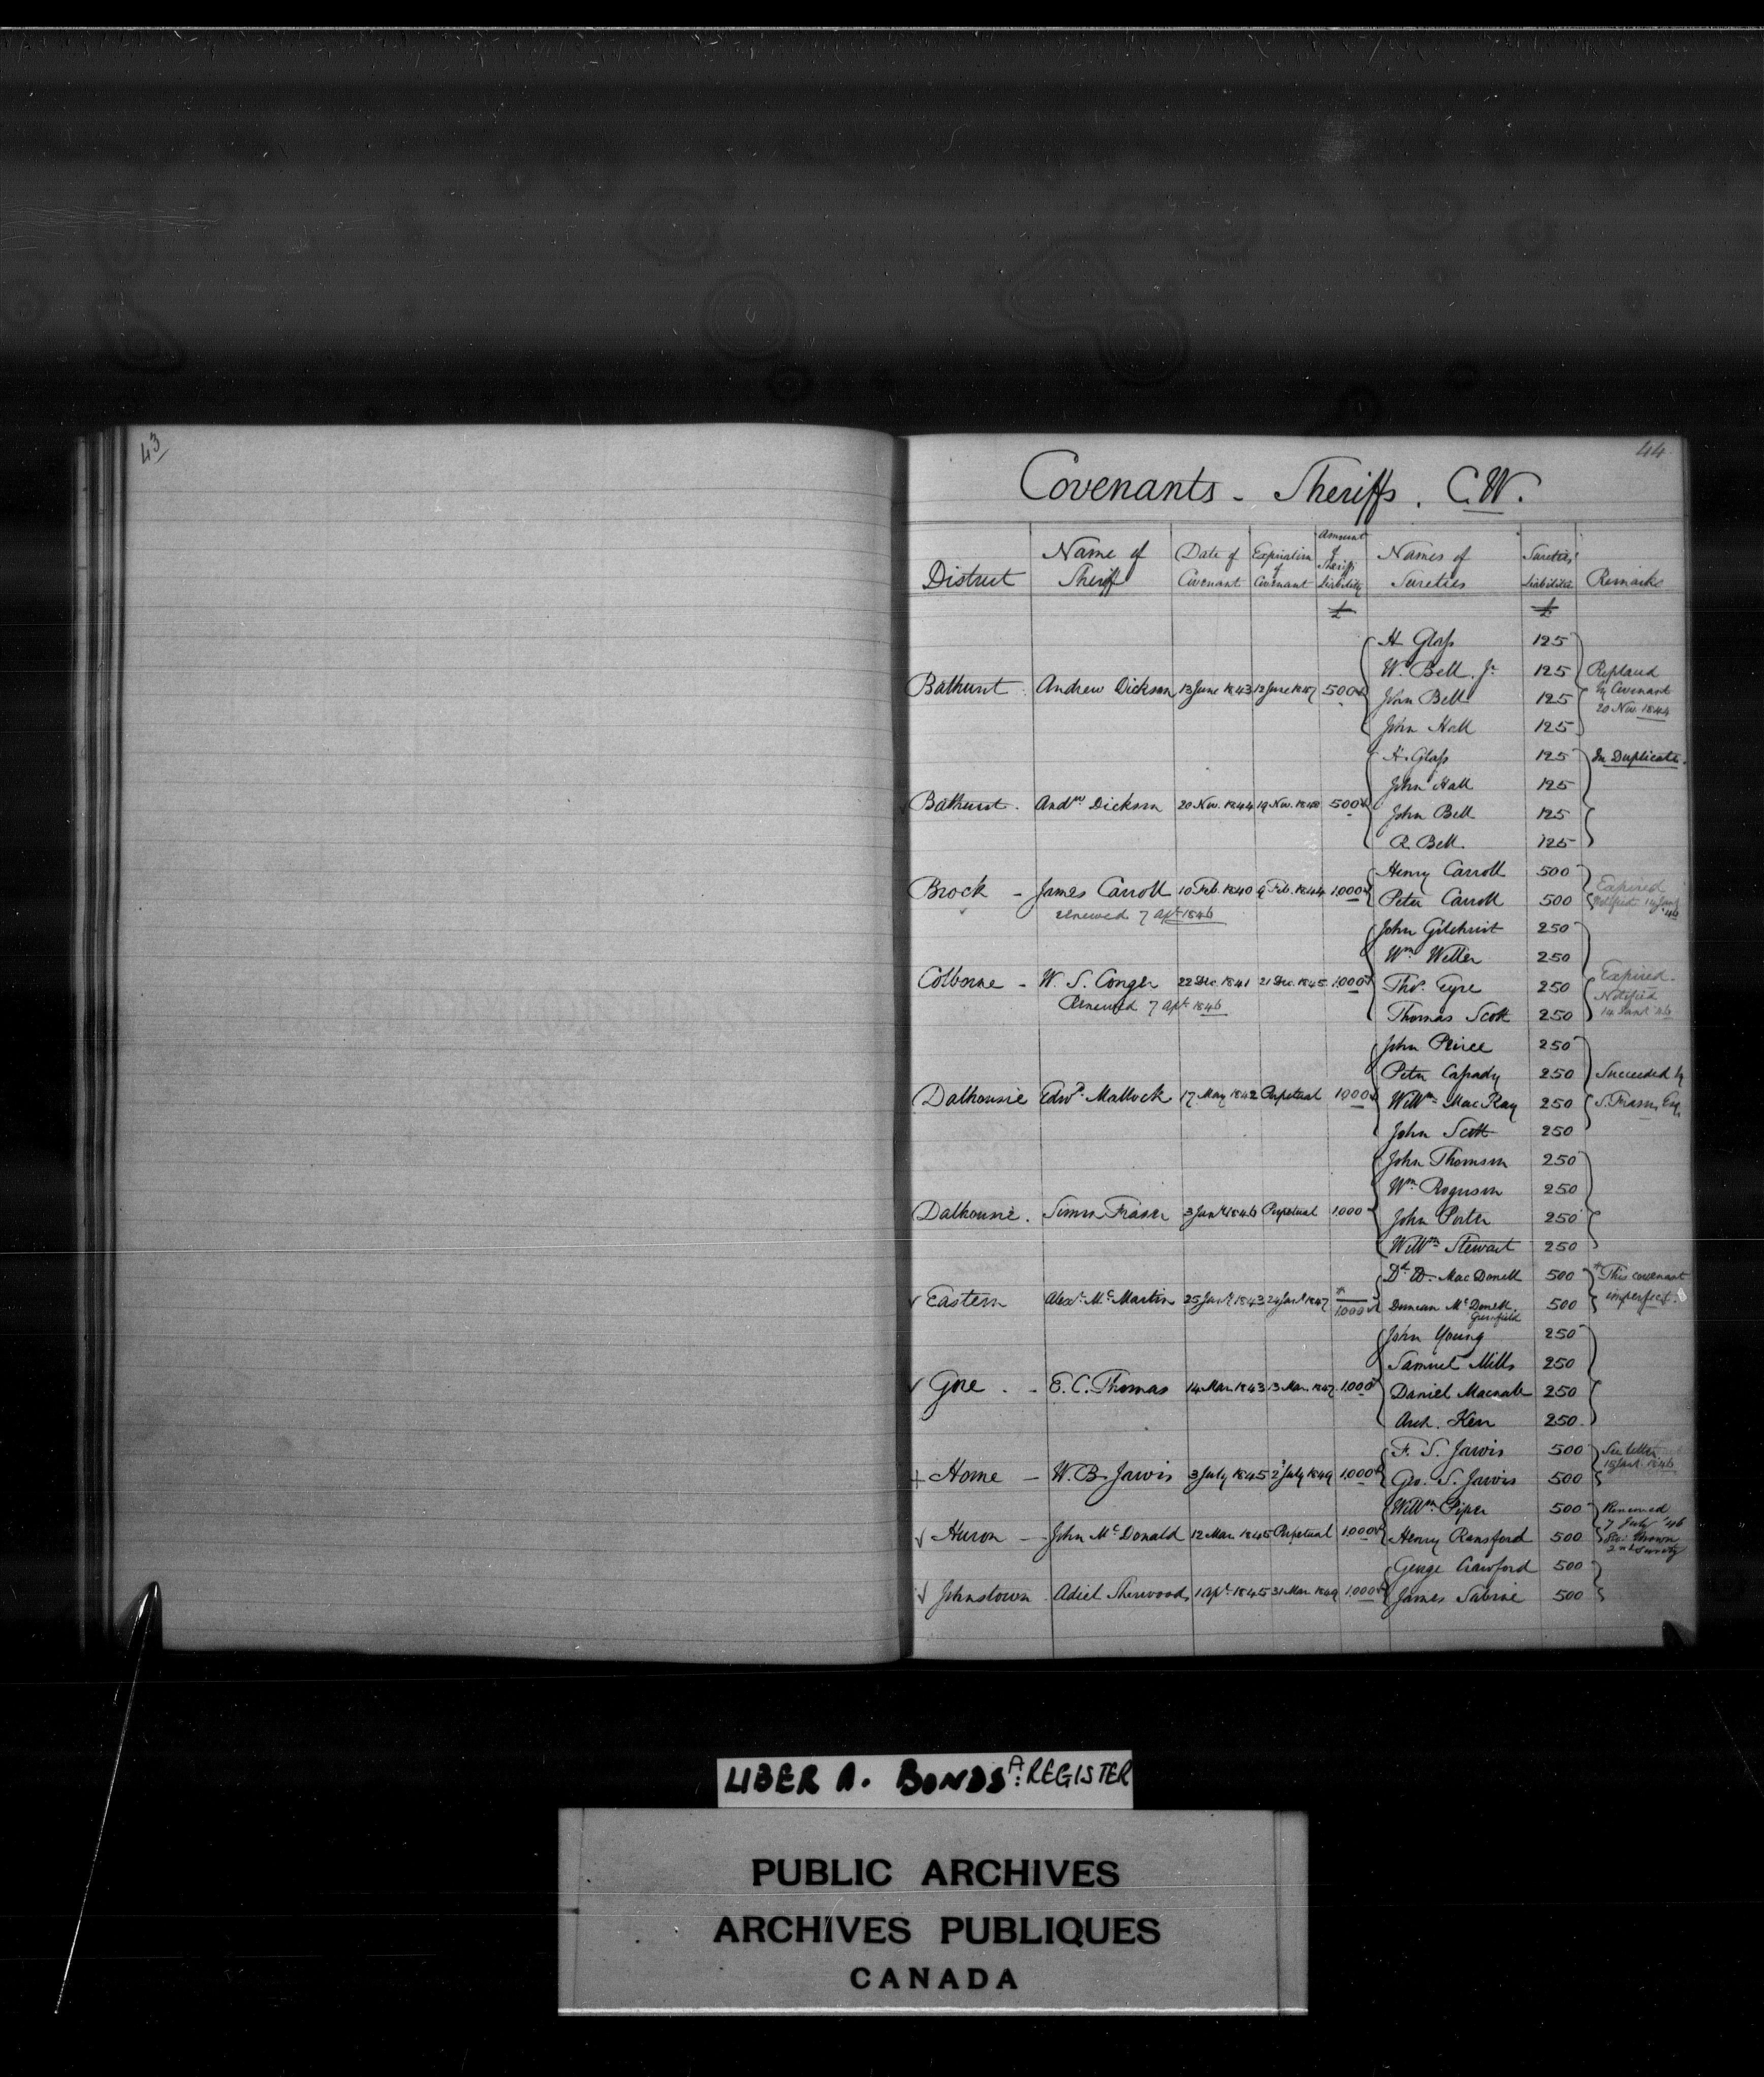 43
44
Covenants - Sheriffs. C.W.
District
Name of Sheriff
Date of Covenant
Expiration of Covenant
Amount of Sheriffs Liability
Names of Sureties
Sureties' Liabilities
Remarks
£ £
H Glass 125
W. Bell. Jr 125 Replaced
Bathurst. Andrew Dickson 13 June 1843 12 June 1847 500 John Bell 125 by Covenant
20 Nov. 1844
John Hall 125
H. Glass 125 In Duplicate.
John Hall 125
Bathurst. Andw Dickson 20 Nov. 1844 19 Nov. 1848 500 John Bell 125
R. Bell. 125
Henry Carroll 500 Expired
Brock - James Carroll 10 Feb. 1840 9 Feb. 1844 1,000 Peter Carroll 500 Notified 14 Jany '46
renewed 7 Apl 1846
John Gilchrist 250
Wm Weller 250
Colborne - W. S. Conger 22 Dec. 1841 21 Dec. 1845 1,000 Thos. Eyre 250 Expired.
Notified
Renewed 7 Apl 1846
Thomas Scott 250 14 Jany '46
John 250
Peter 250 Succeeded by
Dalhousie Edwd. Mallock 17 May 1842 Perpetual 1000 Willm MacKay 250 S. Fraser, Esq.
John Scott 250
John Thomson 250
Wm 250
Dalhousie. Simon Fraser 3 Jany 1846 Perpetual 1,000 John Porter 250
Willm Stewart 250
MacDonell 500 * This covenant
Eastern Alexr. McMartin 25 Jany 1843 24 Jany 1847 * 1,000 Duncan McDonell. 500 imperfect.
Greenfield
John Young 250
Samuel Mills 250
Gore. - E. C. Thomas 14 Mar. 1843 13 Mar. 1847. 1,000 Daniel Macnab 250
Arch. Kerr 250.
F. S. Jarvis 500 See letter
15 Jany 1846
+ Home - W. B. Jarvis 3 July 1845 2 July 1849 1,000 Geo. S. Jarvis 500
Willm Piper 500 Renewed
7 July '46
Huron - John McDonald 12 Mar. 1845 Perpetual 1,000 Henry Ransford 500
2nd Surety
George Crawford 500
Johnstown. Adiel Sherwood 1 Apl. 1845 31 Mar. 1849 1,000 James Sabine 500
LIBER A. BONDS A: REGISTER
PUBLIC ARCHIVES
ARCHIVES PUBLIQUES
CANADA